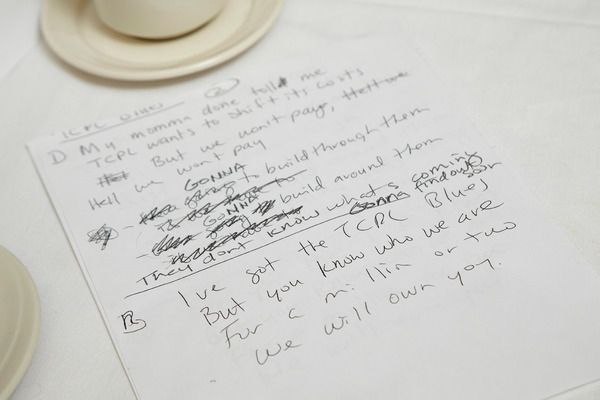 TCPL Blues
② My momma done told me
TCPL wants to shift its costs
But we won't pay,
Hell we won't pay
GONNA build through them
GONNA build around them
They don't know what's coming
Gonna find out soon
B I've got the TCPL Blues
But you know who we are
For a millin or two
We will own you.